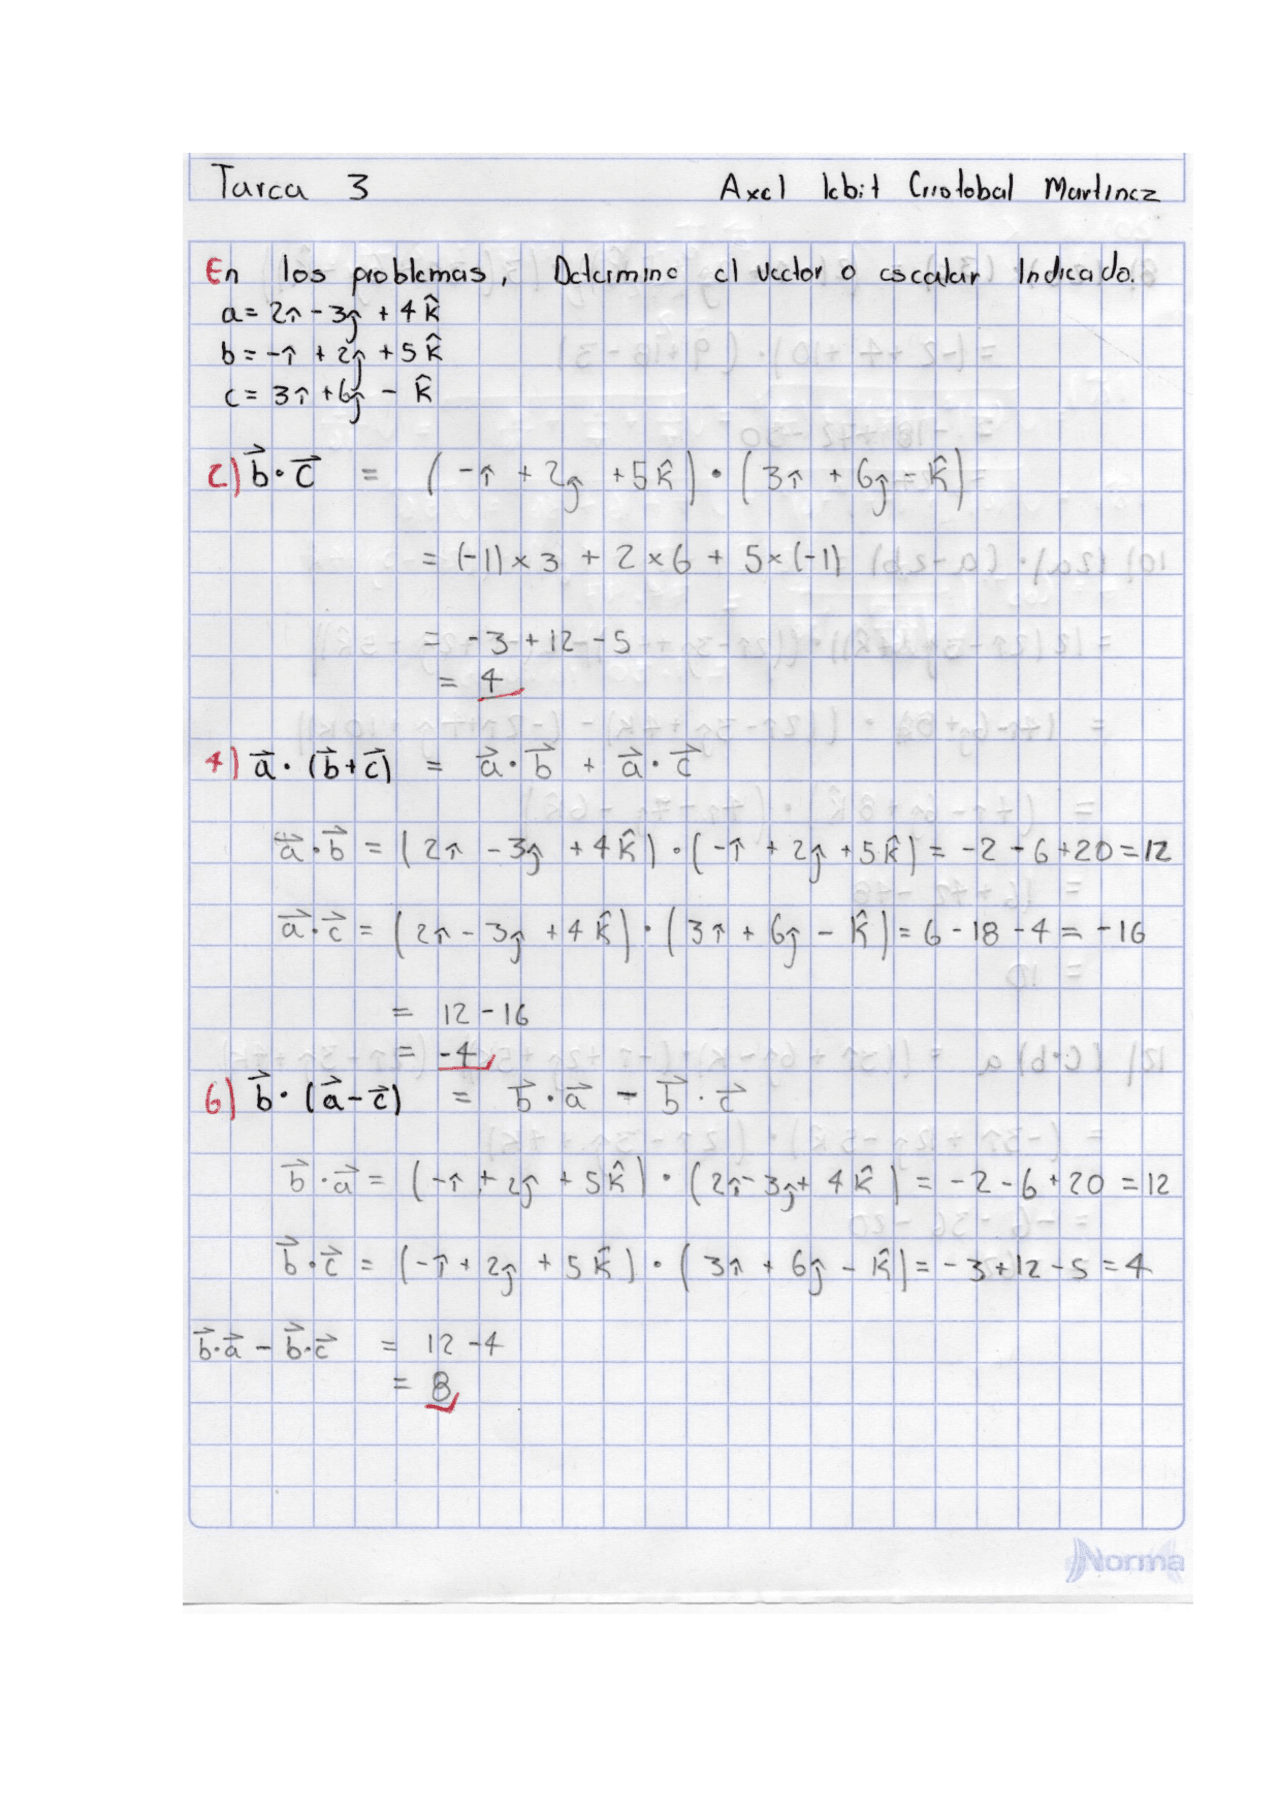 Tarea 3 Axel Icbit Cristobal Martinez
En los problemas, Determine el vector o escalar Indicado.
a = 2î - 3ĵ + 4k̂
b = -î + 2ĵ + 5k̂
c = 3î + 6ĵ - k̂
2) b⃗ · c⃗ = (-î + 2ĵ + 5k̂) · (3î + 6ĵ - k̂)
= (-1) × 3 + 2 × 6 + 5 × (-1)
= -3 + 12 - 5
= 4
4) a⃗ · (b⃗ + c⃗) = a⃗ · b⃗ + a⃗ · c⃗
a⃗ · b⃗ = (2î - 3ĵ + 4k̂) · (-î + 2ĵ + 5k̂) = -2 - 6 + 20 = 12
a⃗ · c⃗ = (2î - 3ĵ + 4k̂) · (3î + 6ĵ - k̂) = 6 - 18 - 4 = -16
= 12 - 16
= -4
6) b⃗ · (a⃗ - c⃗) = b⃗ · a⃗ - b⃗ · c⃗
b⃗ · a⃗ = (-î + 2ĵ + 5k̂) · (2î - 3ĵ + 4k̂) = -2 - 6 + 20 = 12
b⃗ · c⃗ = (-î + 2ĵ + 5k̂) · (3î + 6ĵ - k̂) = -3 + 12 - 5 = 4
b⃗ · a⃗ - b⃗ · c⃗ = 12 - 4
= 8
Norma